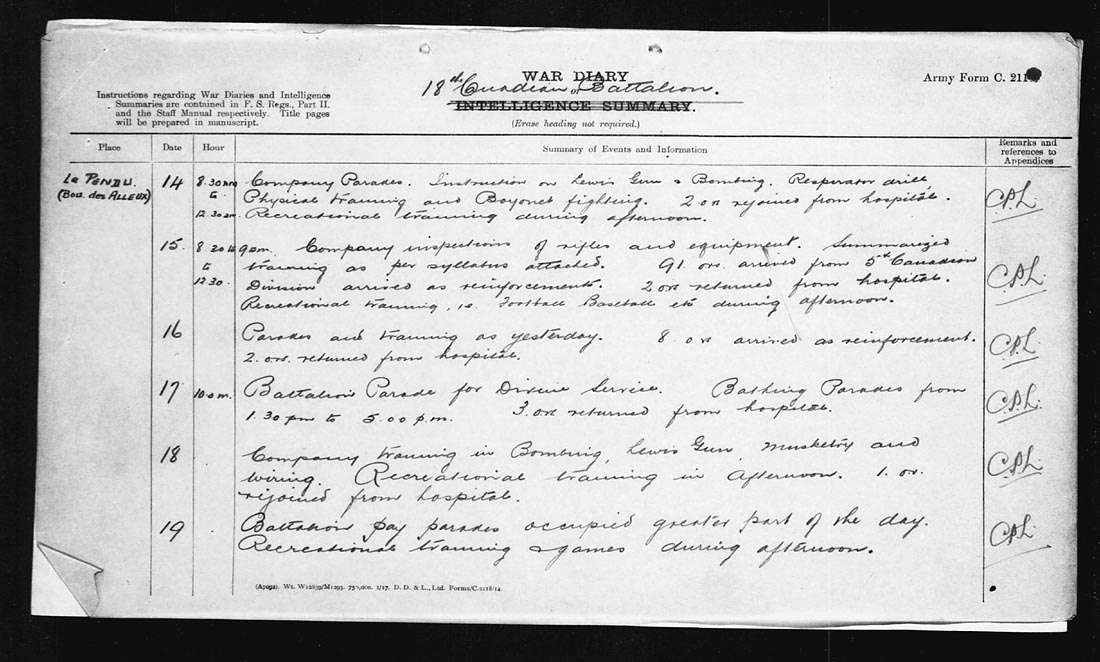 WAR DIARY
Army Form C. 211
18th Canadian or Battalion.
Instructions regarding War Diaries and Intelligence
Summaries are contained in F. S. Regs., Part II.
and the Staff Manual respectively. Title pages
will be prepared in manuscript.
INTELLIGENCE SUMMARY.
(Erase heading not required.)
Place Date Hour Summary of Events and Information Remarks and references to Appendices
Le PENDU. 14 8.30am Company Parades. Instruction on Lewis Gun & Bombing. Respirator drill,
(Bois des ALLEUX) to Physical training and Bayonet fighting. 2 ors rejoined from hospital. C.P.L.
12.30am. Recreational training during afternoon.
15. 8.30 to 9am. Company inspections of rifles and equipment. Summarized
to training as per syllabus attached. 91. ors. arrived from 5th Canadian
12.30. Division arrived as reinforcements. 2 ors returned from hospital. C.P.L.
Recreational training, ie. Football Baseball etc during afternoon.
16 Parades and training as yesterday. 8 ors arrived as reinforcement.
2. ors. returned from hospital. C.P.L.
17 10.0 am. Battalion Parade for Divine Service. Bathing Parades from
1.30 pm to 5.00 p.m. 3. ors returned from hospital. C.P.L.
18 Company training in Bombing, Lewis Gun, Musketry and
wiring. Recreational training in afternoon. 1. or. C.P.L.
rejoined from hospital.
19 Battalion pay parades occupied greater part of the day.
Recreational training & games during afternoon. C.P.L.
(A7092). Wt. W12859/M1293. 750,000. 1/17. D. D. & L., Ltd. Forms/C.2118/14.